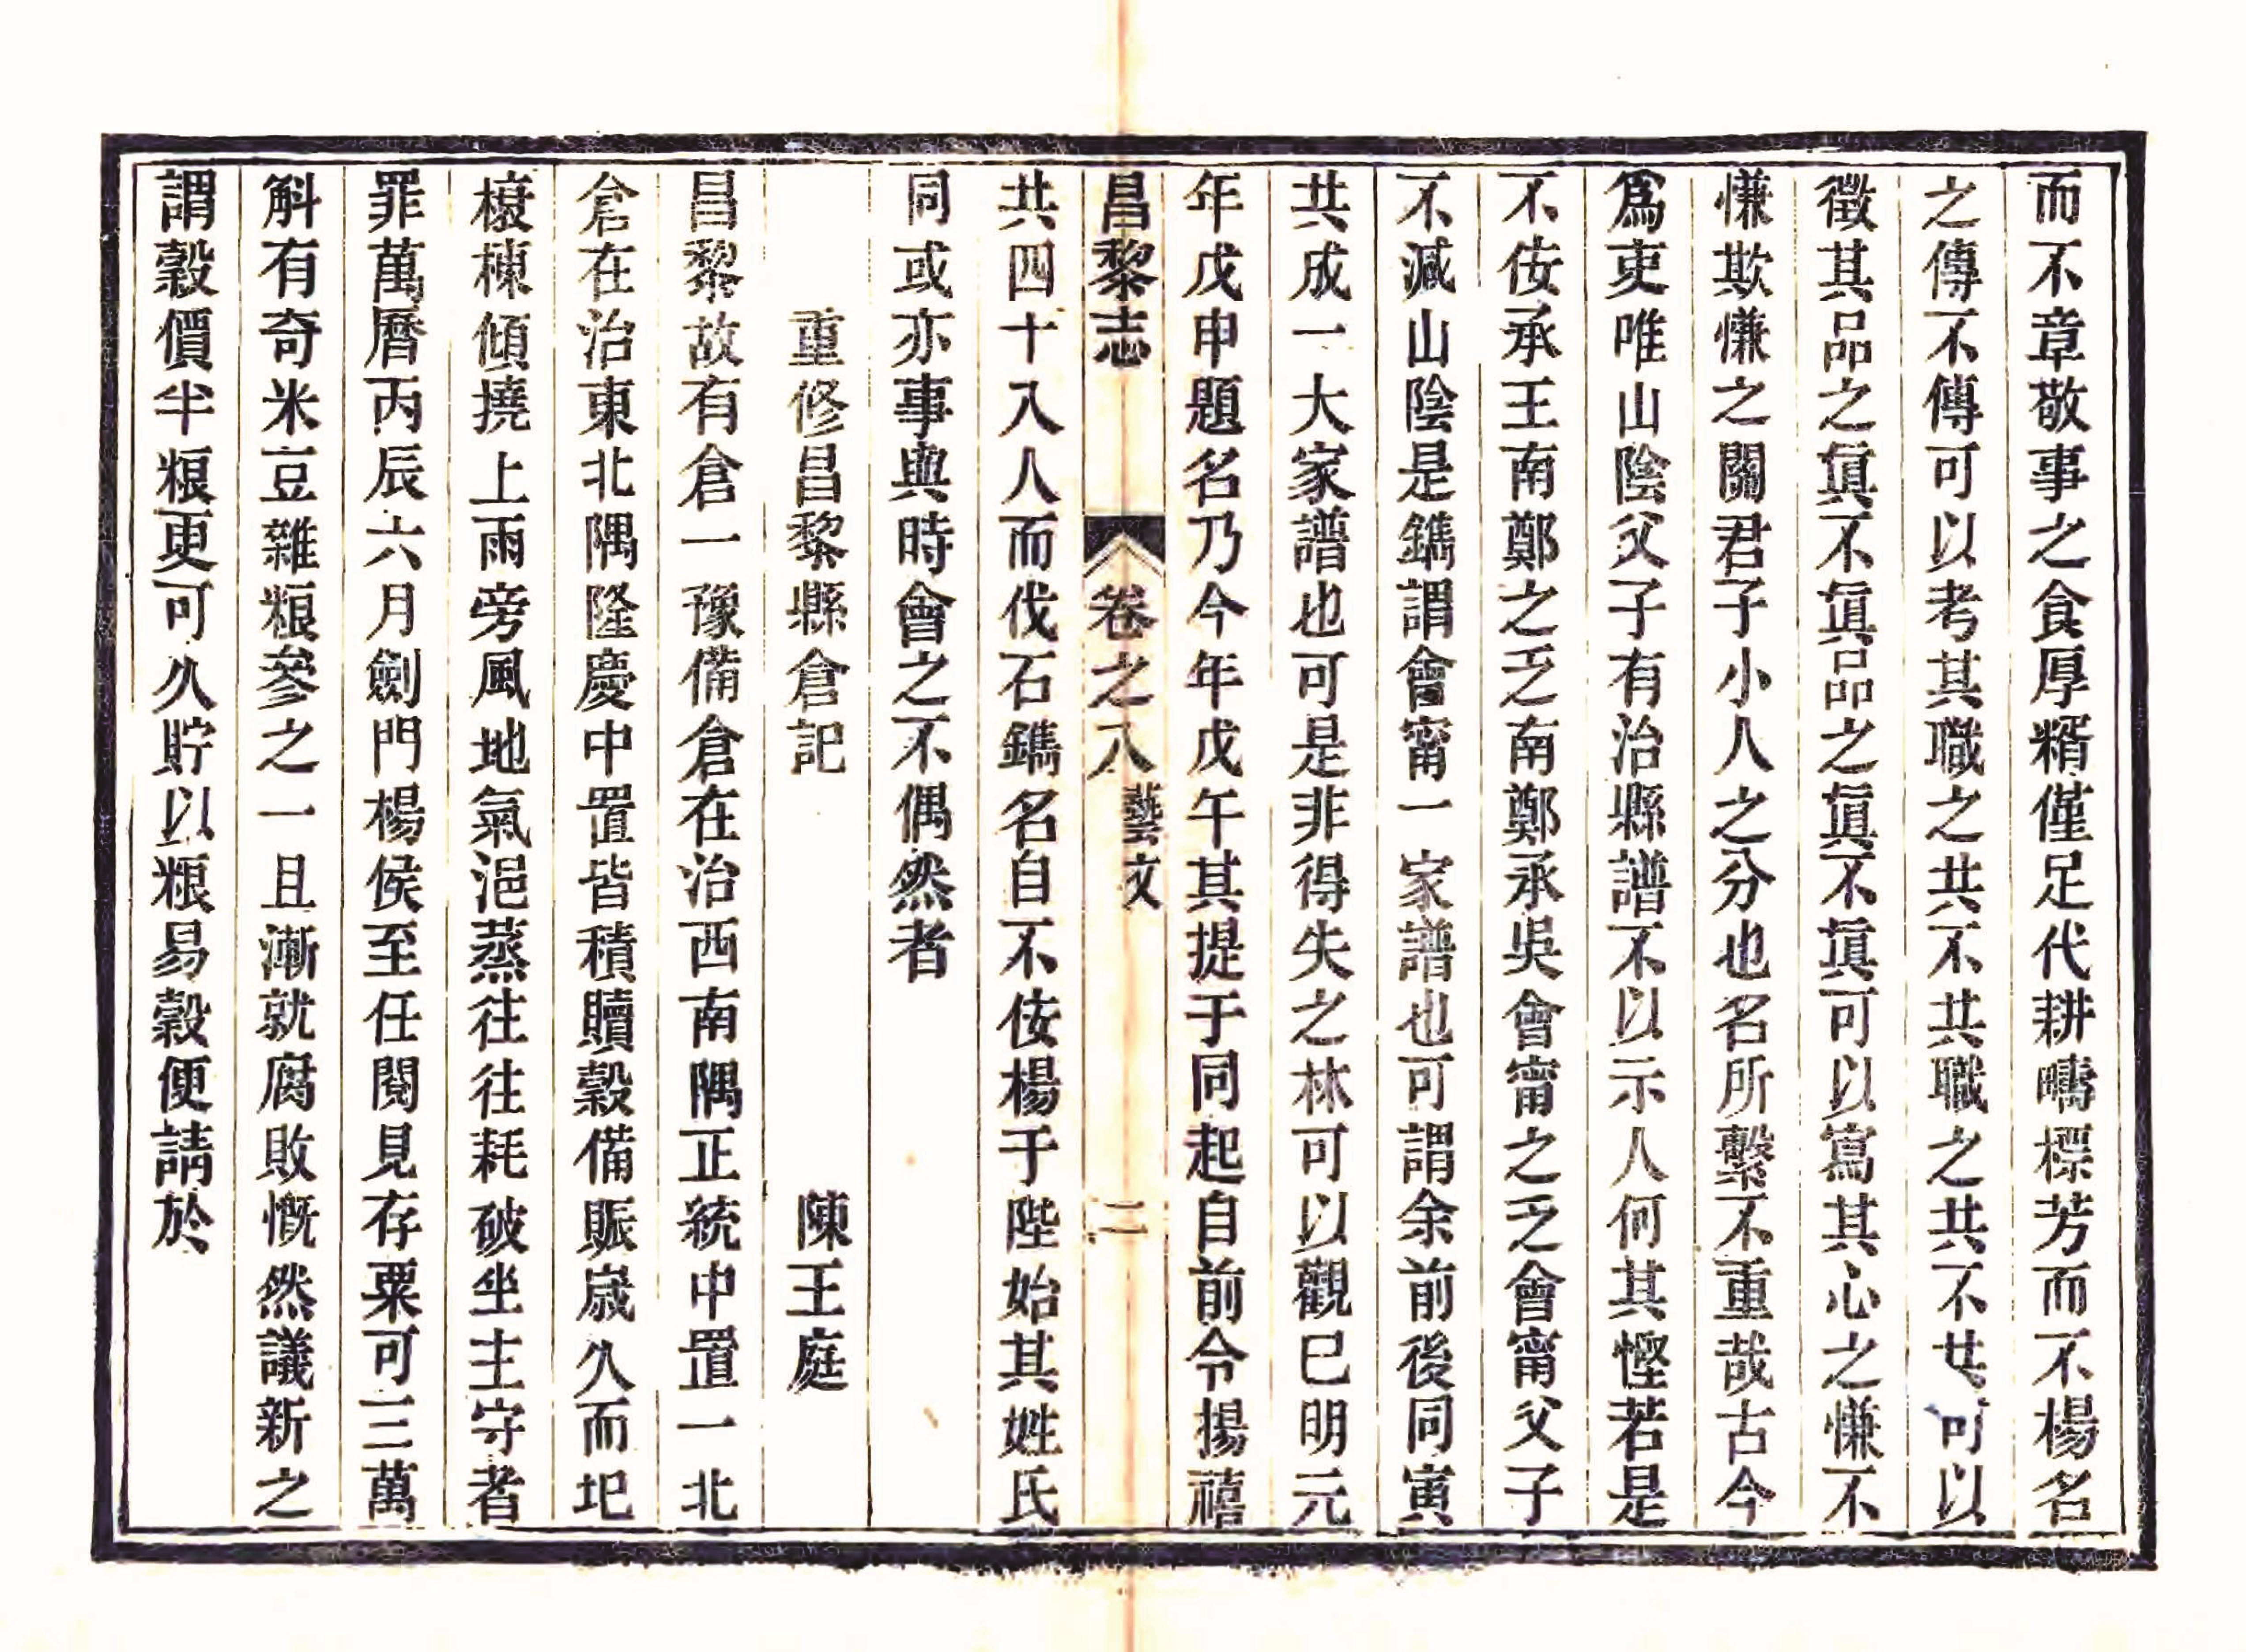 而不章敬事之食厚糈僅足代耕疇標芳而不楊名
之傳不傳可以考其職之共不共職之共不共可以
徵其品之眞不眞品之眞不眞可以寫其心之慊不
慊欺慊之關君子小人之分也名所繫不重哉古今
爲吏唯山陰父子有治縣譜不以示人何其慳若是
不侫承王南鄭之乏南鄭承吳會甯之乏會甯父子
不減山陰是鐫謂會甯一家譜也可謂余前後同寅
共成一大家譜也可是非得失之林可以觀巳明元
年戊申題名乃今年戊午其提于同起自前令揚禧
昌黎志 卷之八 藝文 二
共四十八人而伐石鐫名自不侫楊于陛始其姓氏
同或亦事與時會之不偶然者
重修昌黎縣倉記 陳王庭
昌黎故有倉一豫備倉在治西南隅正統中置一北
倉在治東北隅隆慶中置皆積贖穀備賑歲久而圯
榱棟傾撓上雨旁風地氣浥蒸往往耗破坐主守者
罪萬曆丙辰六月劍門楊侯至任閱見存粟可三萬
斛有奇米豆雜粮參之一且漸就腐敗慨然議新之
謂穀價半粮更可久貯以粮易穀便請於